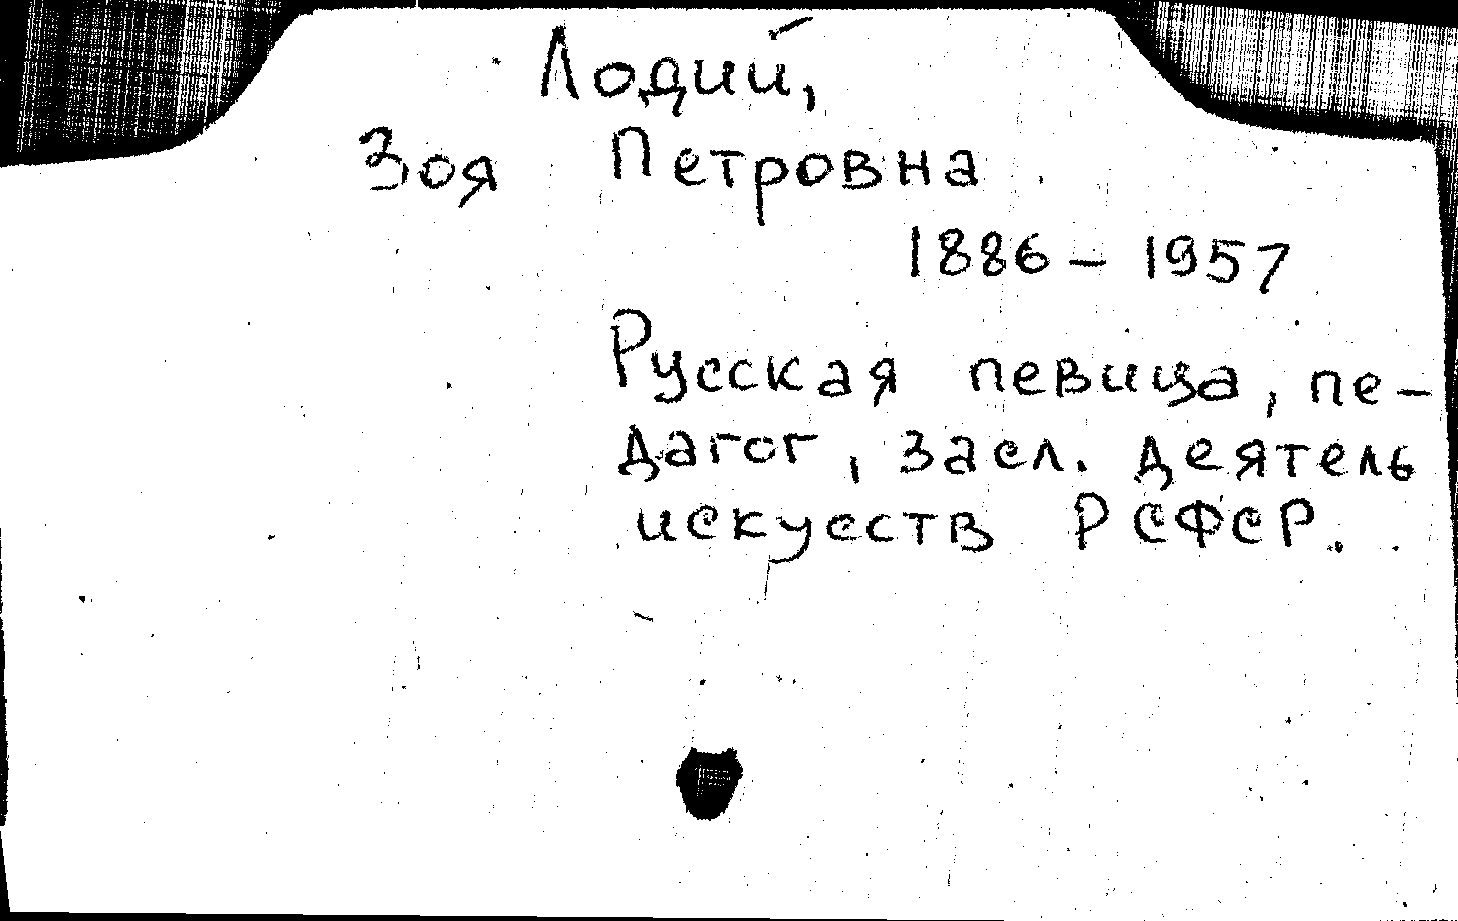 Лодий,
Зоя Петровна
1886 – 1957
Русская певица, пе-
дагог, засл. деятель
искусств РСФСР.